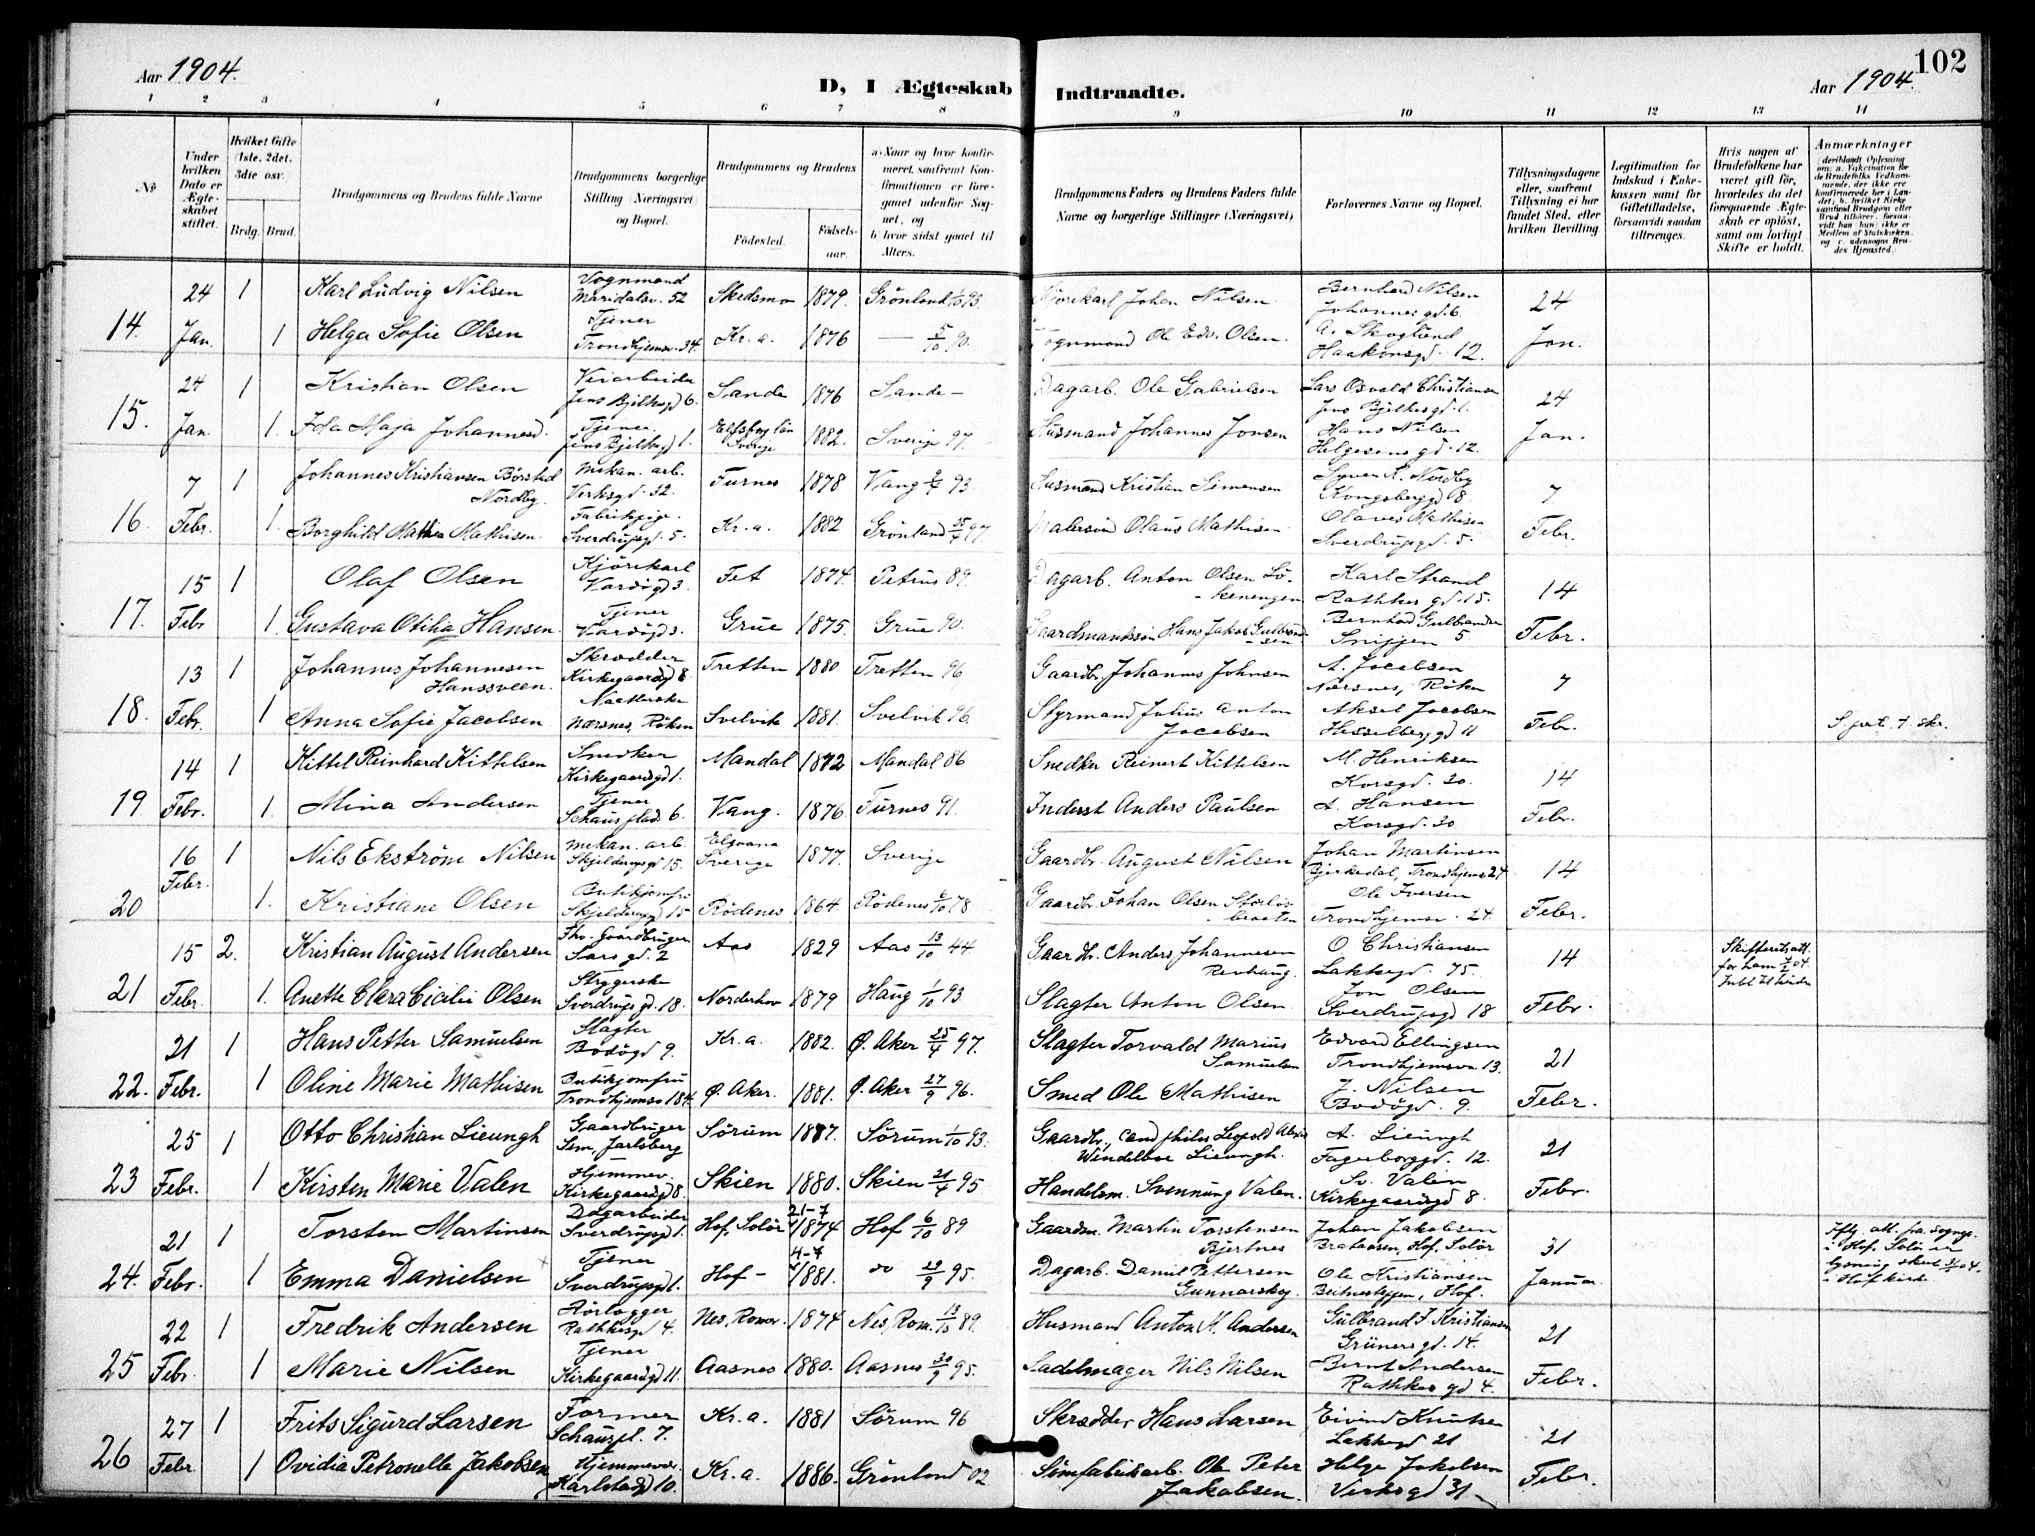 102
Aar 1904.
D, I Ægteskab Indtraadte.
Aar 1904.
1 2 3 4 5 6 7 8 9 10 11 12 13 14
No
Under hvilken Dato er Ægteskabet stiftet.
Hvilket Gifte (1ste, 2det, 3die osv.
Brdg. Brud.
Brudgommens og Brudens fulde Navne
Brudgommens borgerlige Stilling (Næringsvei) og Bopæl.
Brudgommens og Brudens
Fødested.
Fødselsaar.
a) Naar og hvor konfirmeret, saafremt Konfirmationen er foregaaet udenfor Sognet, og
b) hvor sidst gaaet til Alters.
Brudgommens Faders og Brudens Faders fulde Navne og borgerlige Stillinger (Næringsvei)
Forlovernes Navne og Bopæl.
Tillysningsdagene eller, saafremt Tillysning ei har fundet Sted, efter hvilken Bevilling.
Legitimation for Indskud i Enkekassen samt for Giftetilladelse, forsaavidt saadan tiltrænges.
Hvis nogen af Brudefolkene har været gift før, hvorledes da det foregaaende Ægteskab er opløst, samt om lovligt Skifte er holdt.
Anmærkninger
14. 24 Jan. 1 Karl Ludvig Nilsen Vognmand Maridalsv. 52 Skedsmo 1879. Grönland 1/10 93. Kjørekarl Johan Nilsen Bernhard Nilsen Johannesgd. 6. 24 Jan.
1 Helga Sofie Olsen Tjener Trondhjemsv. 34. Kr.a. 1876 — 5/10 90. Vognmand Ole Edv. Olsen. A. Skoglund Haakonsgd. 12.
15. 24 Jan 1 Kristian Olsen Veiarbeider Jens Bjelkesgd 6. Sande 1876 Sande — Dagarb. Ole Gabrielsen Lars Osvald Christiansen Jens Bjelkesgd. 1. 24 Jan.
1. Ida Maja Johannesd. Tjener. Jens Bjelkesgd 1. Elfsborg län Sverige 1882. Sverige 97. Husmand Johannes Jonsen Hans Nilsen Helgesensgd. 12.
16. 7 Febr. 1 Johannes Kristiansen Börstad Nordby. Mekan. arb. Verksgd. 32. Furnes 1878 Vang 93 Husmand Kristian Simensen Syver K. Nordby Kongsberggd 8. 7 Febr.
1. Borghild Mathea Mathisen. Fabrikpige. Sverdrupsgd. 5. Kr.a. 1882 Grönland 25/4 97. Malersvend Olaus Mathisen. Olaves Mathisen Sverdrupsgd. 5.
17. 15 Febr 1 Olaf Olsen Kjörekarl Vardögd 3. Fet 1874. Petrus 89. Dagarb. Anton Olsen Lökenengen Karl Strand Rathkesgd. 15. 14 Febr.
1. Gustava Otilia Hansen. Tjener Vardögd 3. Grue 1875. Grue 90. Gaardmandssön Hans Jakob Gulbrandsen Bernhard Gulbrandsen Snippen 5
18. 13 Febr. 1 Johannes Johannesen Hanssveen. Skrædder Kirkegaardsgd 8 Tretten 1880 Tretten 96 Gaardbr. Johannes Johnsen A. Jacobsen Nærsnes, Röken 7 Febr.
1 Anna Sofie Jacobsen Nærsnes, Röken Svelvik 1881. Svelvik 96. Styrmand Julius Anton Jacobsen Aksel Jacobsen Hesselberggd 11
19. 14 Febr. 1 Kittel Reinhard Kittelsen Snedker Kirkegaardsgd 1. Mandal 1872 Mandal 86 Snedker Reinert Kittelsen M. Henriksen Korsgd. 20. 14 Febr.
1. Mina Andersen Tjener Schaus plads 6. Vang. 1876 Furnes 91. Inderst Anders Paulsen A. Hansen Korsgd. 20
20 16 Febr. 1 Nils Ekström Nilsen Mekan. arb. Skjeldrupsgd 15. Sverige 1877. Sverige Gaardbr. August Nilsen Johan Martinsen Bjerkedal, Trondhjemsv 24 14 Febr.
1. Kristiane Olsen Butikjomfru 15 Rödenes 1864 Rödenes 6/10 78 Gaardbr. Johan Olsen Ole Iversen Trondhjemsv. 24.
21 15 Febr. 2. Kristian August Andersen Fhv. Gaardbruger Larsgd. 2 Aas 1829 Aas 13/10 44. Gaardbr. Anders Johannesen Revhaug. O Christiansen Lakkegd. 75. 14 Febr. Skifteretsatt. for ham
1. Anette Clara Cicilie Olsen Strygerske Sverdrupsgd. 18. Norderhov 1879 Haug 1/10 93 Slagter Anton Olsen. Jon Olsen Sverdrupsgd 18
22. 21 Febr. 1 Hans Petter Samuelsen Slagter Bodögd 9. Kr.a. 1882. Ø. Aker 25/4 97. Slagter Torvald Marius Samuelsen Edvard Ellingsen Trondhjemsvn 13. 21 Febr.
1 Oline Marie Mathisen Butikjomfru Trondhjemsv 184. Ø. Aker. 1881. Ø. Aker 27/9 96. Smed Ole Mathisen J. Nilsen Bodögd. 9.
23 25 Febr. 1 Otto Christian Lieungh Gaardbruger Sem, Jarlsberg Sörum 1877. Sörum 1/10 93. Gaardbr., cand philos Leopold Alexis Windelboe Lieungh. A. Lieungh Fagerborggd. 12. 21 Febr.
1 Kirsten Marie Valen Hjemmev. Kirkegaardsgd 8. Skien 1880. Skien 21/4 95. Handelsm. Svennung Valen. Sv. Valen Kirkegaardsgd 8.
24. 21 Febr. 1 Torsten Martinsen Dagarbeider Sverdrupsgd 1. Hof, Solör 21-7 1874 Hof 6/10 89 Gaardm. Martin Torstensen Bjertnes Johan Jakobsen Brataasen, Hof, Solör 31 Januar
1 Emma Danielsen Tjener Sverdrupsgd 1. Hof — 4-7 1881. do 29/9 95. Dagarb. Daniel Pettersen Gunnarsby. Ole Kristiansen Hof.
25 22 Febr. 1 Fredrik Andersen Rörlægger Rathkesgd 4. Nes, Romer. 1874 Nes, Rom. 13/10 89. Husmand Anton M. Andersen Gulbrand J Kristiansen Grünersgd. 14. 21 Febr.
1 Marie Nilsen Tjener Kirkegaardsgd 11. Aasnes 1880. Aasnes 30/9 95. Sadelmager Nils Nilsen Bernt Andersen Rathkesgd 4.
26 27 Febr 1 Frits Sigurd Larsen Former Schauspl. 7. Kr.a. 1881 Sörum 96 Skrædder Hans Larsen Eivind Knutsen Lakkegd 21 21 Febr.
1 Ovidia Petronelle Jakobsen Hjemmevær. Karlstadgd 10. Kr.a. 1886. Grönland 02 Sömfabrikarb. Ole Peter Jakobsen. Helge Jakobsen Verksgd 31